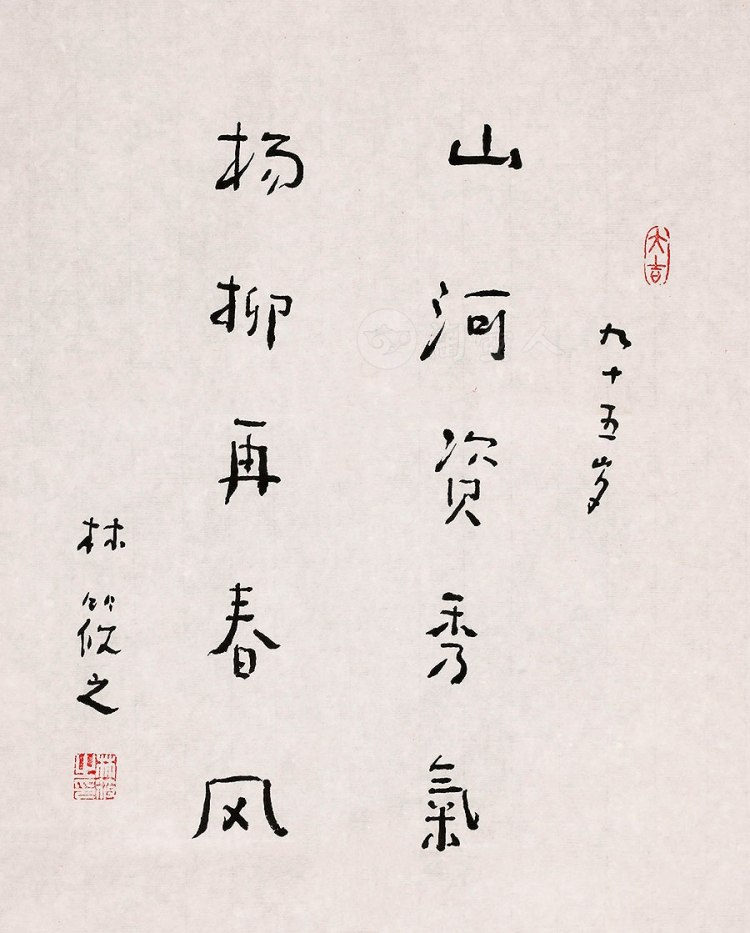 大吉
九十五岁
山河资秀氣
杨柳再春风
林筱之